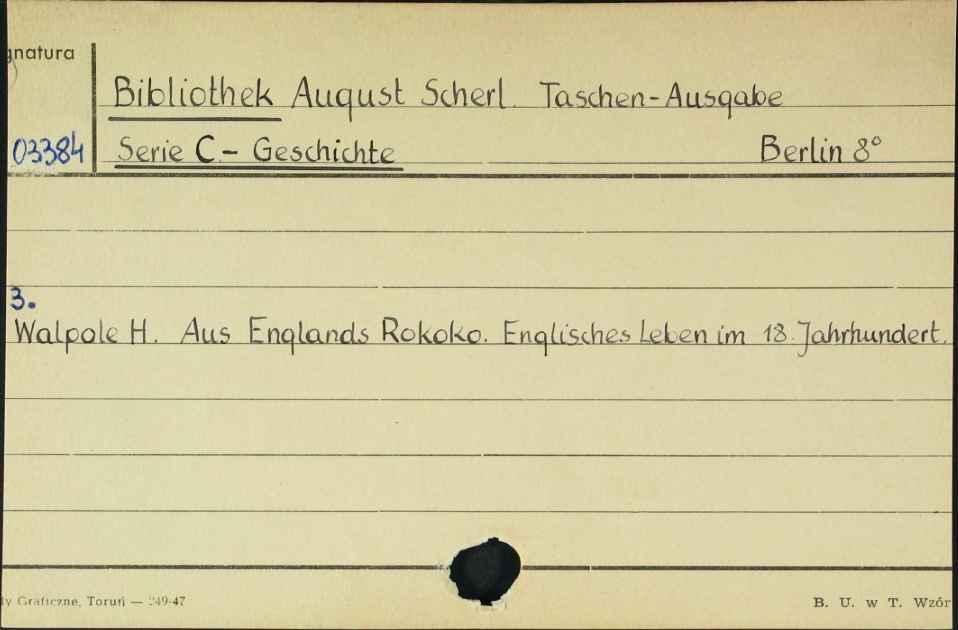 gnatura
Bibliothek August Scherl. Taschen-Ausgabe
03384
Serie C – Geschichte Berlin 8°
3.
Walpole H. Aus Englands Rokoko. Englisches Leben im 18. Jahrhundert.
dy Graficzne, Toruń — 249-47
B. U. w T. Wzór